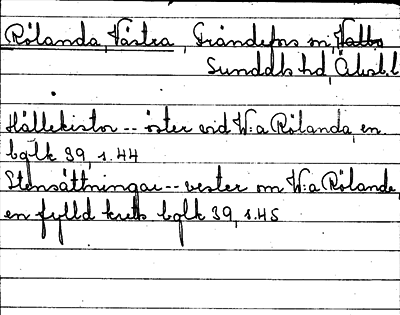 Rölanda, Västra, Grändefors sn, Valbo
Sundals hd, Älvsb.l.
Hällekistor -- öster vid W:a Rölanda, en
bglk 39, s. 44
Stensättningar -- vester om W:a Rölanda,
en fylld krets bglk 39, s. 45